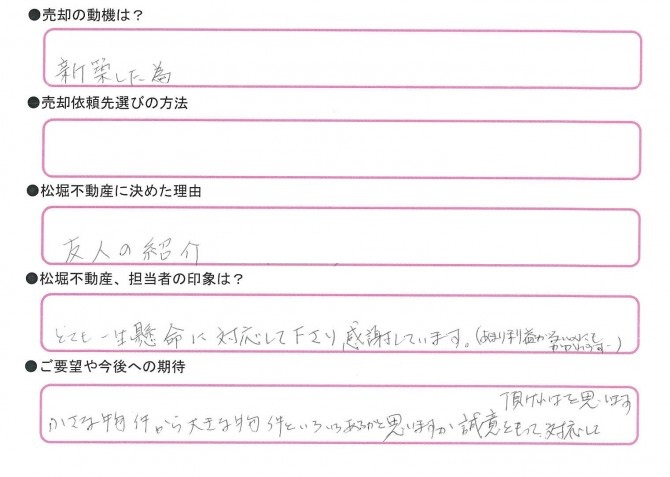 ●売却の動機は？
新築した為
●売却依頼先選びの方法
●松堀不動産に決めた理由
友人の紹介
●松堀不動産、担当者の印象は？
とても一生懸命に対応して下さり感謝しています。(あまり利益がないにもかかわらず…)
●ご要望や今後への期待
小さな物件から大きな物件といろいろあるかと思いますが誠意をもって対応して
頂ければと思います